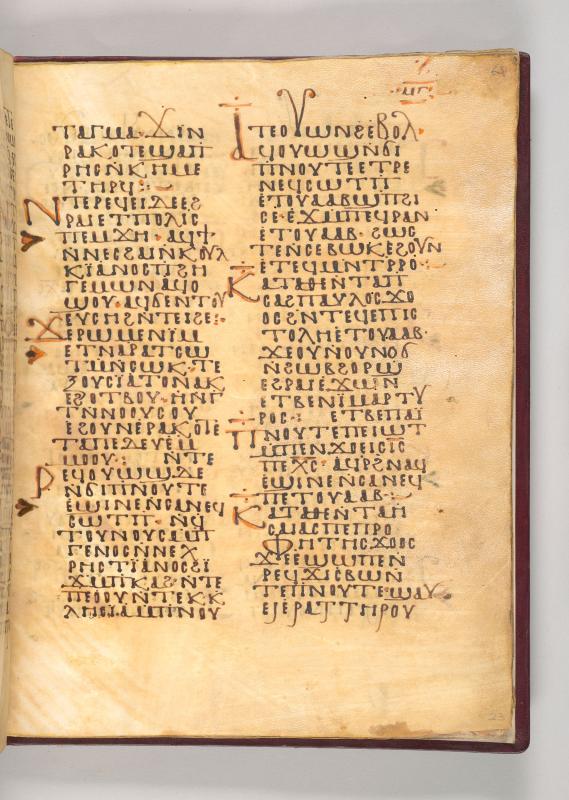 ⲙⲅ
ⲧⲁⲅⲙⲁ· ϫⲓⲛ
ⲣⲁⲕⲟⲧⲉ ϣⲁⲡ
ⲣⲏⲥ ⲛⲕⲏⲙⲉ
ⲧⲏⲣϥ
ⲛⲧⲉⲣⲉϥⲉⲓ ⲇⲉ ⲉϩ
ⲣⲁⲓ ⲉⲧⲡⲟⲗⲓⲥ
ⲡⲉⲙϫⲏ· ⲁϥϯ
ⲛⲛⲉⲥϩⲁⲓ ⲛⲕⲟⲩⲗ
ⲕⲓⲁⲛⲟⲥ ⲡϩⲏ
ⲅⲉⲙⲱⲛ ⲁϥⲟ
ϣⲟⲩ· ⲁϥϭⲛⲧⲟⲩ
ⲉⲩⲥⲏϩ ⲛⲧⲉⲓϩⲉ:
ϫⲉ ⲣⲱⲙⲉ ⲛⲓⲙ
ⲉⲧⲛⲁⲣⲁⲧⲥⲱ
ⲧⲙ ⲛⲥⲱⲕ· ⲧⲉ
ⲝⲟⲩⲥⲓⲁ ⲧⲟⲛⲁⲕ
ⲉϩⲟⲧⲃⲟⲩ· ⲏ ⲛⲅ
ⲧⲛⲛⲟⲟⲩⲥⲟⲩ
ⲉϩⲟⲩⲛ ⲉⲣⲁⲕⲟⲧⲉ
ⲧⲁⲡⲉⲇⲉⲩⲉ ⲙ
ⲙⲟⲟⲩ: ⲛⲧⲉ
ⲣⲉϥⲟⲩⲱϣ ⲇⲉ
ⲛϭⲓ ⲡⲛⲟⲩⲧⲉ
ⲉϣⲓⲛⲉ ⲛⲥⲁ ⲛⲉϥ
ⲥⲱⲧⲡ· ⲛϥ
ⲧⲟⲩⲛⲟⲩⲥ ⲙⲡ
ⲅⲉⲛⲟⲥ ⲛⲛⲉⲭ
ⲣⲏⲥⲧⲓⲁⲛⲟⲥ ϩⲓ
ϫⲙ ⲡⲕⲁϩ· ⲛⲧⲉ
ⲡⲉⲟⲟⲩ ⲛⲧⲉⲕⲕ
ⲗⲏⲥⲓⲁ ⲙⲡⲛⲟⲩ
ⲧⲉ ⲟⲩⲱⲛϩ ⲉⲃⲟⲗ·
ⲁϥⲟⲩⲱϣ ⲛϭⲓ
ⲡⲛⲟⲩⲧⲉ ⲉⲧⲣⲉ
ⲛⲉϥⲥⲱⲧⲡ
ⲉⲧⲟⲩⲁⲁⲃ ϣⲡϩⲓ
ⲥⲉ ⲉϫⲙ ⲡⲉϥⲣⲁⲛ
ⲉⲧⲟⲩⲁⲁⲃ· ϩⲱⲥ
ⲧⲉ ⲛⲥⲉⲃⲱⲕ ⲉϩⲟⲩⲛ
ⲉⲧⲉϥⲙⲛⲧⲣⲣⲟ·
ⲕⲁⲧⲁ ⲑⲉ ⲛⲧⲁⲡ
ⲥⲁϩ ⲡⲁⲩⲗⲟⲥ ϫⲟ
ⲟⲥ ϩⲛ ⲧⲉϥⲉⲡⲓⲥ
ⲧⲟⲗⲏ ⲉⲧⲟⲩⲁⲁⲃ·
ϫⲉ ⲟⲩⲛ ⲟⲩⲛⲟϭ
ⲛϩⲱⲃ ϩⲟⲣϣ
ⲉϩⲣⲁⲓ ⲉϫⲱⲛ
ⲉⲧⲃⲉ ⲛⲓⲙⲁⲣⲧⲩ
ⲣⲟⲥ: ⲉⲧⲃⲉ ⲡⲁⲓ
ⲡⲛⲟⲩⲧⲉ ⲡⲉⲓⲱⲧ
ⲙⲡⲉⲛϫⲟⲉⲓⲥ ⲓⲥ
ⲡⲉⲭⲥ· ⲁϥⲣϩⲛⲁϥ
ⲉϣⲓⲛⲉ ⲛⲥⲁ ⲛⲉϥ
ⲡⲉⲧⲟⲩⲁⲁⲃ·
ⲕⲁⲧⲁ ⲑⲉ ⲛⲧⲁⲏ
ⲥⲁⲓⲁⲥ ⲡⲉⲡⲣⲟ
ⲫⲏⲧⲏⲥ ϫⲟⲟⲥ
ϫⲉ ⲉϣⲱⲡⲉ ⲛ
ⲣⲉϥϫⲓⲥⲃⲱ ⲛ
ⲧⲉ ⲡⲛⲟⲩⲧⲉ ϣⲁⲩ
ⲉⲓⲉⲣⲁⲧ ⲧⲏⲣⲟⲩ
23